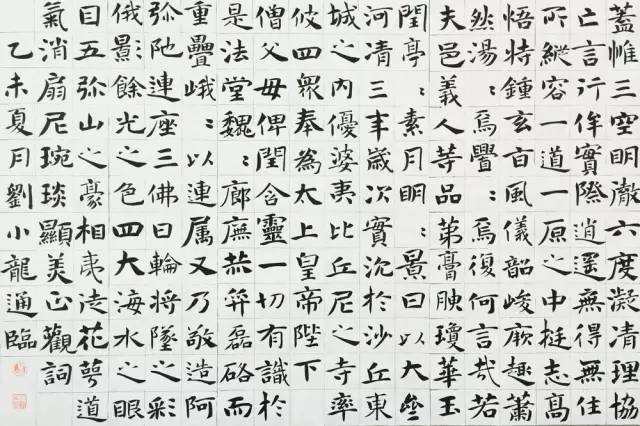 蓋惟三空明澈六度凝清理協
亡言行侔實際逍遥無得無住
所縱容一道一原之中挺志高
悟特鍾玄百風儀韶峻厥趣蕭
然湯：焉亹：焉復何言哉若
夫邑義人等品：第膏腴瓊華玉
閏亭：素月明：景曰以大叄
河清三年歲次實沉於沙丘東
城之內優婆夷比丘尼之寺率
彼四衆奉為太上皇帝陛下
僧父母俾閏含靈一切有識於
是法堂魏：廊廡恭弈磊硌而
重疊峨：以連属又乃敬造阿
弥陁連座三佛日輪將墜之彩
俄影餘光之色四大海水之眼
目五弥山之豪相夷途花萼道
氣消扇尼琬琰顯美正觀詞
乙未夏月劉小龍通臨